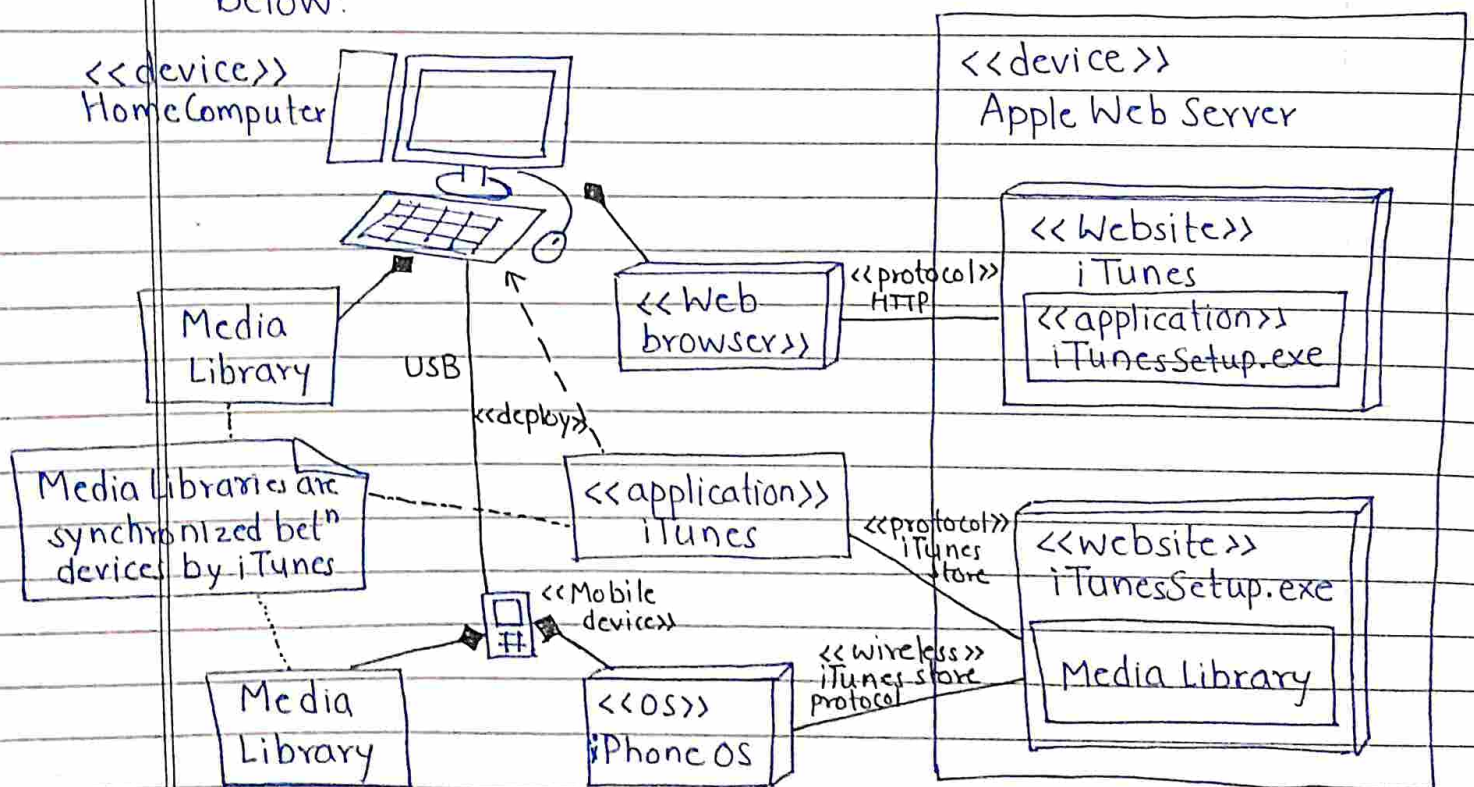 below.
<<device>>
HomeComputer
<<device>>
Apple Web Server
<<Website>>
iTunes
<<application>>
iTunesSetup.exe
<<Web
browser>>
<<protocol>>
HTTP
Media
Library
USB
<<deploy>>
Media Libraries are
synchronized betⁿ
devices by iTunes
<<application>>
iTunes
<<protocol>>
iTunes
store
<<website>>
iTunesSetup.exe
Media Library
<<Mobile
device>>
<<wireless>>
iTunes store
protocol
Media
Library
<<OS>>
iPhone OS